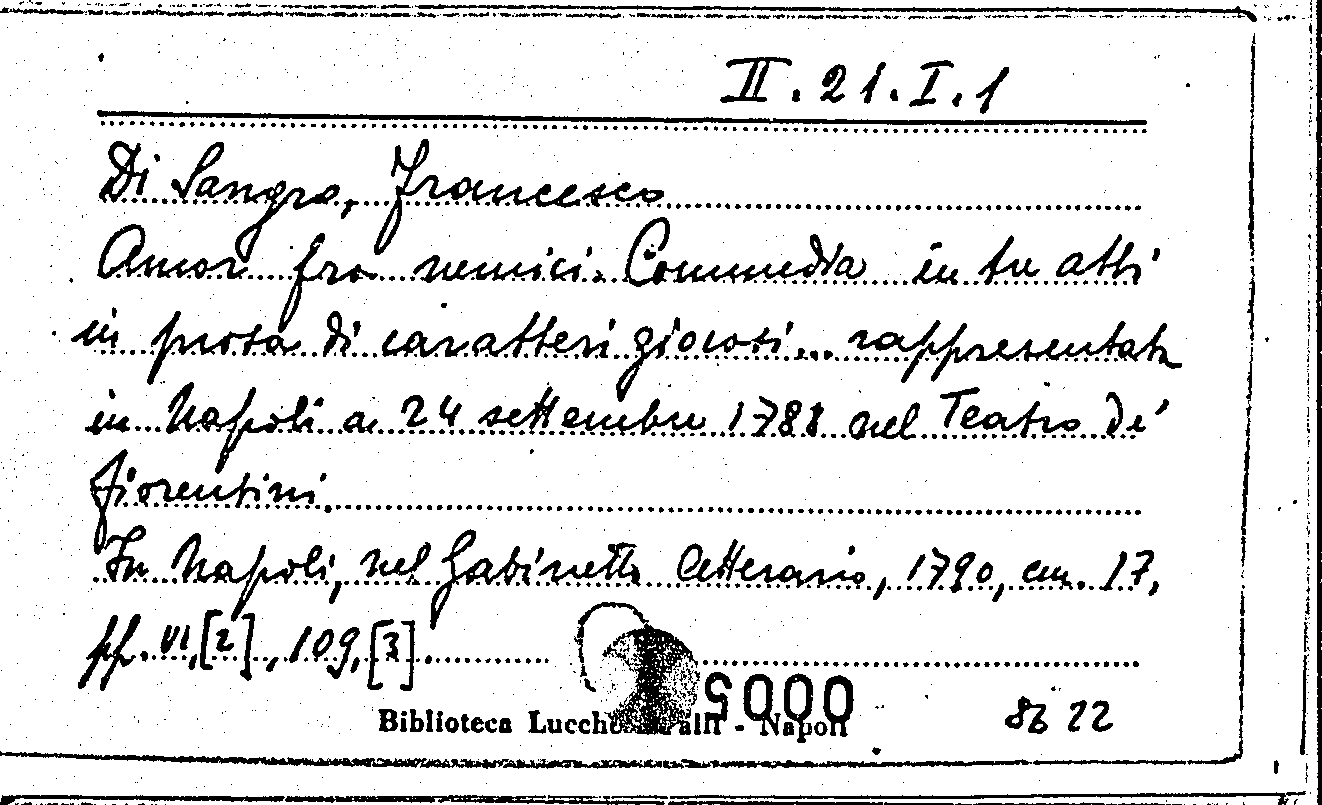 II.21.I.1
Di Sangro, Francesco
Amor fra nemici. Commedia in tre atti
in prosa di caratteri giocosi... rappresentata
in Napoli a 24 settembre 1788 nel Teatro de'
fiorentini.
In Napoli, nel Gabinetto Letterario, 1790, cm. 17,
pp. VI,[2], 109,[3].
0005
Biblioteca - Napoli
22